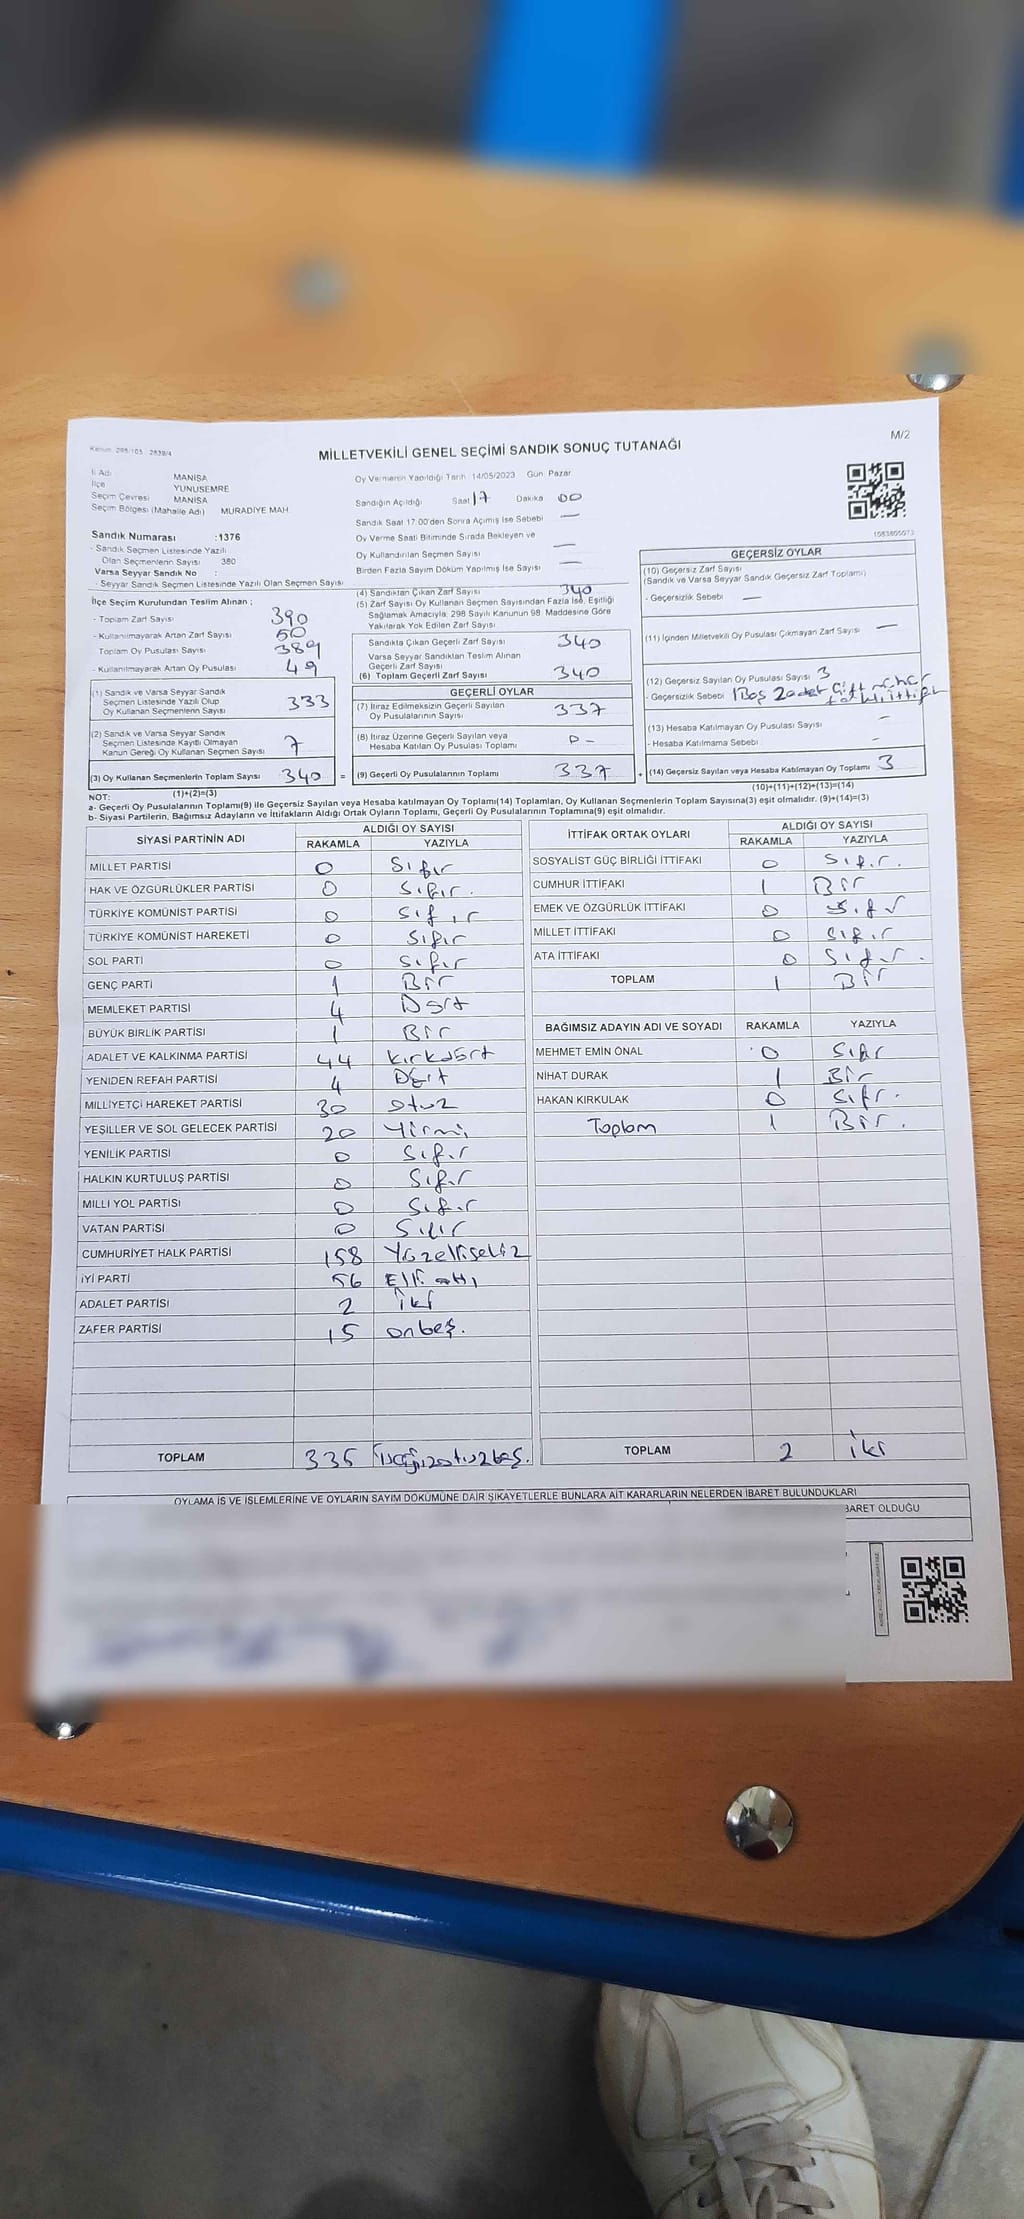 Kanun: 298/105 2839/4
MİLLETVEKİLİ GENEL SEÇİMİ SANDIK SONUÇ TUTANAĞI
M/2
İl Adı MANİSA
İlçe YUNUSEMRE
Seçim Çevresi MANİSA
Seçim Bölgesi (Mahalle Adı) MURADİYE MAH.
Sandık Numarası :1376
- Sandık Seçmen Listesinde Yazılı
Olan Seçmenlerin Sayısı 380
Varsa Seyyar Sandık No :
- Seyyar Sandık Seçmen Listesinde Yazılı Olan Seçmen Sayısı
İlçe Seçim Kurulundan Teslim Alınan ;
- Toplam Zarf Sayısı 390
- Kullanılmayarak Artan Zarf Sayısı 50
- Toplam Oy Pusulası Sayısı 389
- Kullanılmayarak Artan Oy Pusulası 49
(1) Sandık ve Varsa Seyyar Sandık
Seçmen Listesinde Yazılı Olup
Oy Kullanan Seçmenlerin Sayısı 333
(2) Sandık ve Varsa Seyyar Sandık
Seçmen Listesinde Kayıtlı Olmayan
Kanun Gereği Oy Kullanan Seçmen Sayısı 7
(3) Oy Kullanan Seçmenlerin Toplam Sayısı 340
(1)+(2)=(3)
Oy Vermenin Yapıldığı Tarih 14/05/2023 Gün: Pazar
Sandığın Açıldığı Saat 17 Dakika 00
Sandık Saat 17:00'den Sonra Açılmış İse Sebebi —
Oy Verme Saati Bitiminde Sırada Bekleyen ve
Oy Kullandırılan Seçmen Sayısı —
Birden Fazla Sayım Döküm Yapılmış İse Sayısı —
(4) Sandıktan Çıkan Zarf Sayısı 340
(5) Zarf Sayısı Oy Kullanan Seçmen Sayısından Fazla İse, Eşitliği
Sağlamak Amacıyla; 298 Sayılı Kanunun 98. Maddesine Göre
Yakılarak Yok Edilen Zarf Sayısı
Sandıkta Çıkan Geçerli Zarf Sayısı 340
Varsa Seyyar Sandıktan Teslim Alınan
Geçerli Zarf Sayısı
(6) Toplam Geçerli Zarf Sayısı 340
GEÇERLİ OYLAR
(7) İtiraz Edilmeksizin Geçerli Sayılan
Oy Pusulalarının Sayısı 337
(8) İtiraz Üzerine Geçerli Sayılan veya
Hesaba Katılan Oy Pusulası Toplamı
= (9) Geçerli Oy Pusulalarının Toplamı 337
1083800073
GEÇERSİZ OYLAR
(10) Geçersiz Zarf Sayısı
(Sandık ve Varsa Seyyar Sandık Geçersiz Zarf Toplamı)
- Geçersizlik Sebebi —
(11) İçinden Milletvekili Oy Pusulası Çıkmayan Zarf Sayısı —
(12) Geçersiz Sayılan Oy Pusulası Sayısı 3
- Geçersizlik Sebebi 1 Boş 2 adet Çift mühür
farklı ittifak
(13) Hesaba Katılmayan Oy Pusulası Sayısı -
- Hesaba Katılmama Sebebi -
+ (14) Geçersiz Sayılan veya Hesaba Katılmayan Oy Toplamı 3
(10)+(11)+(12)+(13)=(14)
NOT:
a- Geçerli Oy Pusulalarının Toplamı(9) ile Geçersiz Sayılan veya Hesaba katılmayan Oy Toplamı(14) Toplamları, Oy Kullanan Seçmenlerin Toplam Sayısına(3) eşit olmalıdır. (9)+(14)=(3)
b- Siyasi Partilerin, Bağımsız Adayların ve İttifakların Aldığı Ortak Oyların Toplamı, Geçerli Oy Pusulalarının Toplamına(9) eşit olmalıdır.
SİYASİ PARTİNİN ADI ALDIĞI OY SAYISI
RAKAMLA YAZIYLA
MİLLET PARTİSİ 0 Sıfır
HAK VE ÖZGÜRLÜKLER PARTİSİ 0 Sıfır.
TÜRKİYE KOMÜNİST PARTİSİ 0 Sıfır
TÜRKİYE KOMÜNİST HAREKETİ 0 Sıfır
SOL PARTİ 0 Sıfır
GENÇ PARTİ 1 Bir
MEMLEKET PARTİSİ 4 Dört
BÜYÜK BİRLİK PARTİSİ 1 Bir
ADALET VE KALKINMA PARTİSİ 44 Kırkdört
YENİDEN REFAH PARTİSİ 4 Dört
MİLLİYETÇİ HAREKET PARTİSİ 30 otuz
YEŞİLLER VE SOL GELECEK PARTİSİ 20 Yirmi
YENİLİK PARTİSİ 0 Sıfır
HALKIN KURTULUŞ PARTİSİ 0 Sıfır
MİLLİ YOL PARTİSİ 0 Sıfır
VATAN PARTİSİ 0 Sıfır
CUMHURİYET HALK PARTİSİ 158 Yüzellisekiz
İYİ PARTİ 56 Elli altı
ADALET PARTİSİ 2 iki
ZAFER PARTİSİ 15 onbeş.
TOPLAM 335 üçyüzotuzbeş.
İTTİFAK ORTAK OYLARI ALDIĞI OY SAYISI
RAKAMLA YAZIYLA
SOSYALİST GÜÇ BİRLİĞİ İTTİFAKI 0 Sıfır.
CUMHUR İTTİFAKI 1 Bir
EMEK VE ÖZGÜRLÜK İTTİFAKI 0 Sıfır
MİLLET İTTİFAKI 0 Sıfır
ATA İTTİFAKI 0 Sıfır.
TOPLAM 1 Bir
BAĞIMSIZ ADAYIN ADI VE SOYADI RAKAMLA YAZIYLA
MEHMET EMİN ÖNAL 0 Sıfır
NİHAT DURAK 1 Bir
HAKAN KIRKULAK 0 Sıfır.
Toplam 1 Bir.
TOPLAM 2 İki
OYLAMA İŞ VE İŞLEMLERİNE VE OYLARIN SAYIM DÖKÜMÜNE DAİR ŞİKAYETLERLE BUNLARA AİT KARARLARIN NELERDEN İBARET BULUNDUKLARI
BARET OLDUĞU